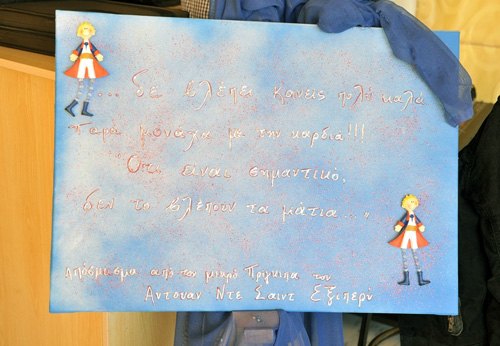 ... δε βλέπει κανείς πολύ καλά
παρά μονάχα με την καρδιά!!!
Ότι είναι σημαντικό,
δεν το βλέπουν τα μάτια..."
Απόσπασμα από τον μικρό Πρίγκιπα του
Αντουάν Ντε Σαιντ Εξιπερύ